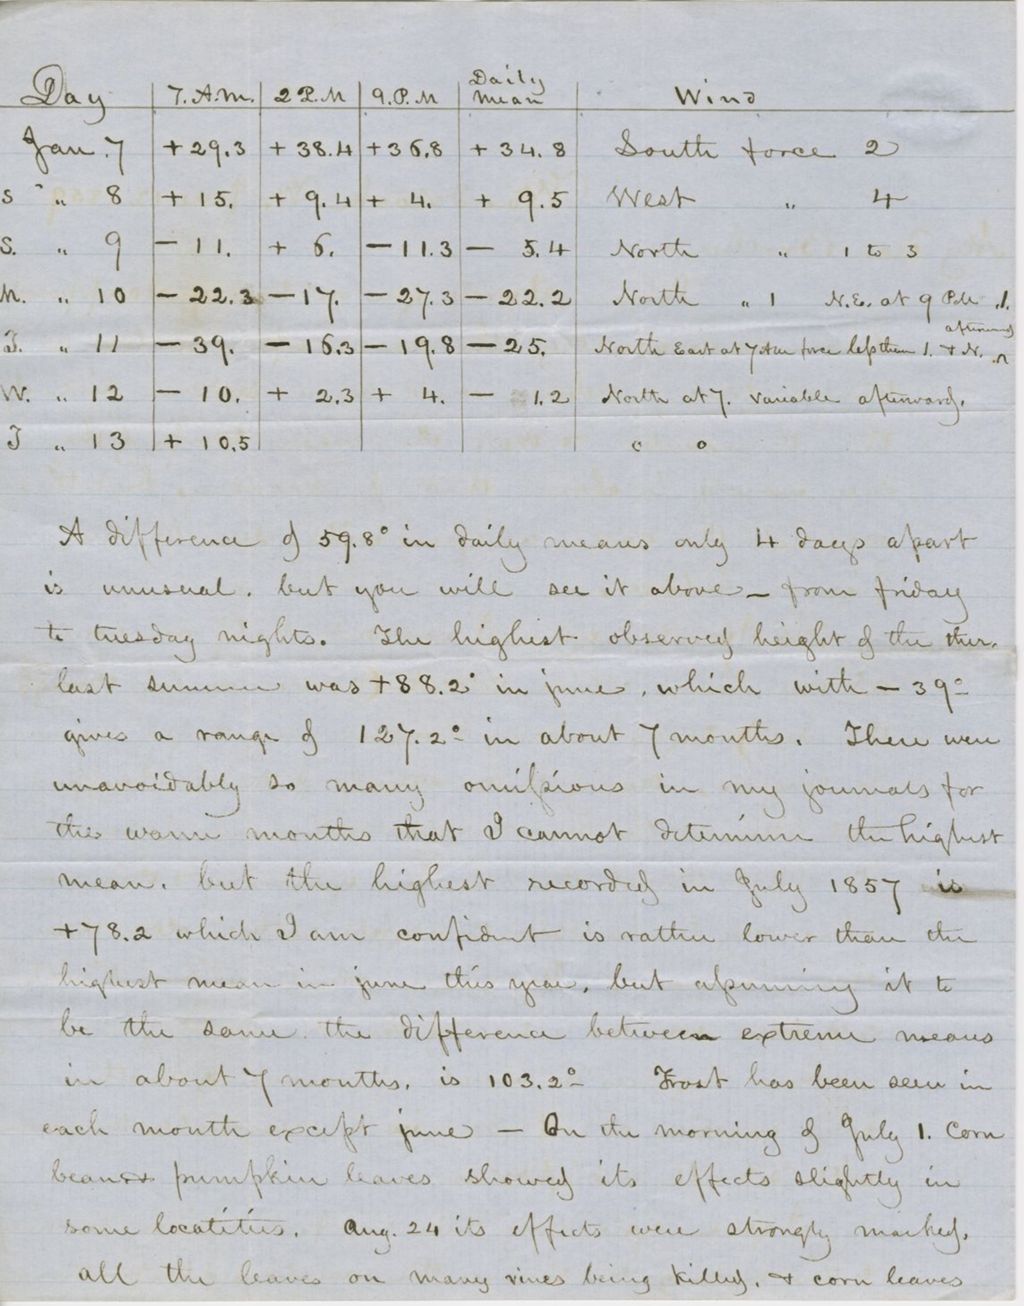 Day 7. A.M. 2 P.M 9. P. M Daily mean Wind
Jan. 7 + 29.3 + 38.4 + 36.8 + 34.8 South force 2
S " 8 + 15. + 9.4 + 4. + 9.5 West " 4
S. " 9 - 11. + 6. - 11.3 - 5.4 North " 1 to 3
M. " 10 - 22.3 - 17. - 27.3 - 22.2 North " 1 N.E. at 9 P.M .1.
T. " 11 - 39. - 16.3 - 19.8 - 25. North East at 7 AM force less than 1. & N. afternoon
W. " 12 - 10. + 2.3 + 4. - 1.2 North at 7. variable afterward.
T " 13 + 10.5 " 0
A difference of 59.8° in daily means only 4 days apart
is unusual. but you will see it above – from friday
to tuesday nights. The highest observed height of the ther.
last summer was +88.2° in june, which with – 39°
gives a range of 127.2° in about 7 months. There were
unavoidably so many omissions in my journals for
the warm months that I cannot determine the highest
mean. but the highest recorded in July 1857 is
+78.2 which I am confident is rather lower than the
highest mean in june this year, but assuming it to
be the same. the difference between extreme means
in about 7 months. is 103.2° Frost has been seen in
each month except june – On the morning of July 1. corn
bean & pumpkin leaves showed its effects slightly in
some localities. Aug. 24 its effects were strongly marked.
all the leaves on many vines being killed. & corn leaves